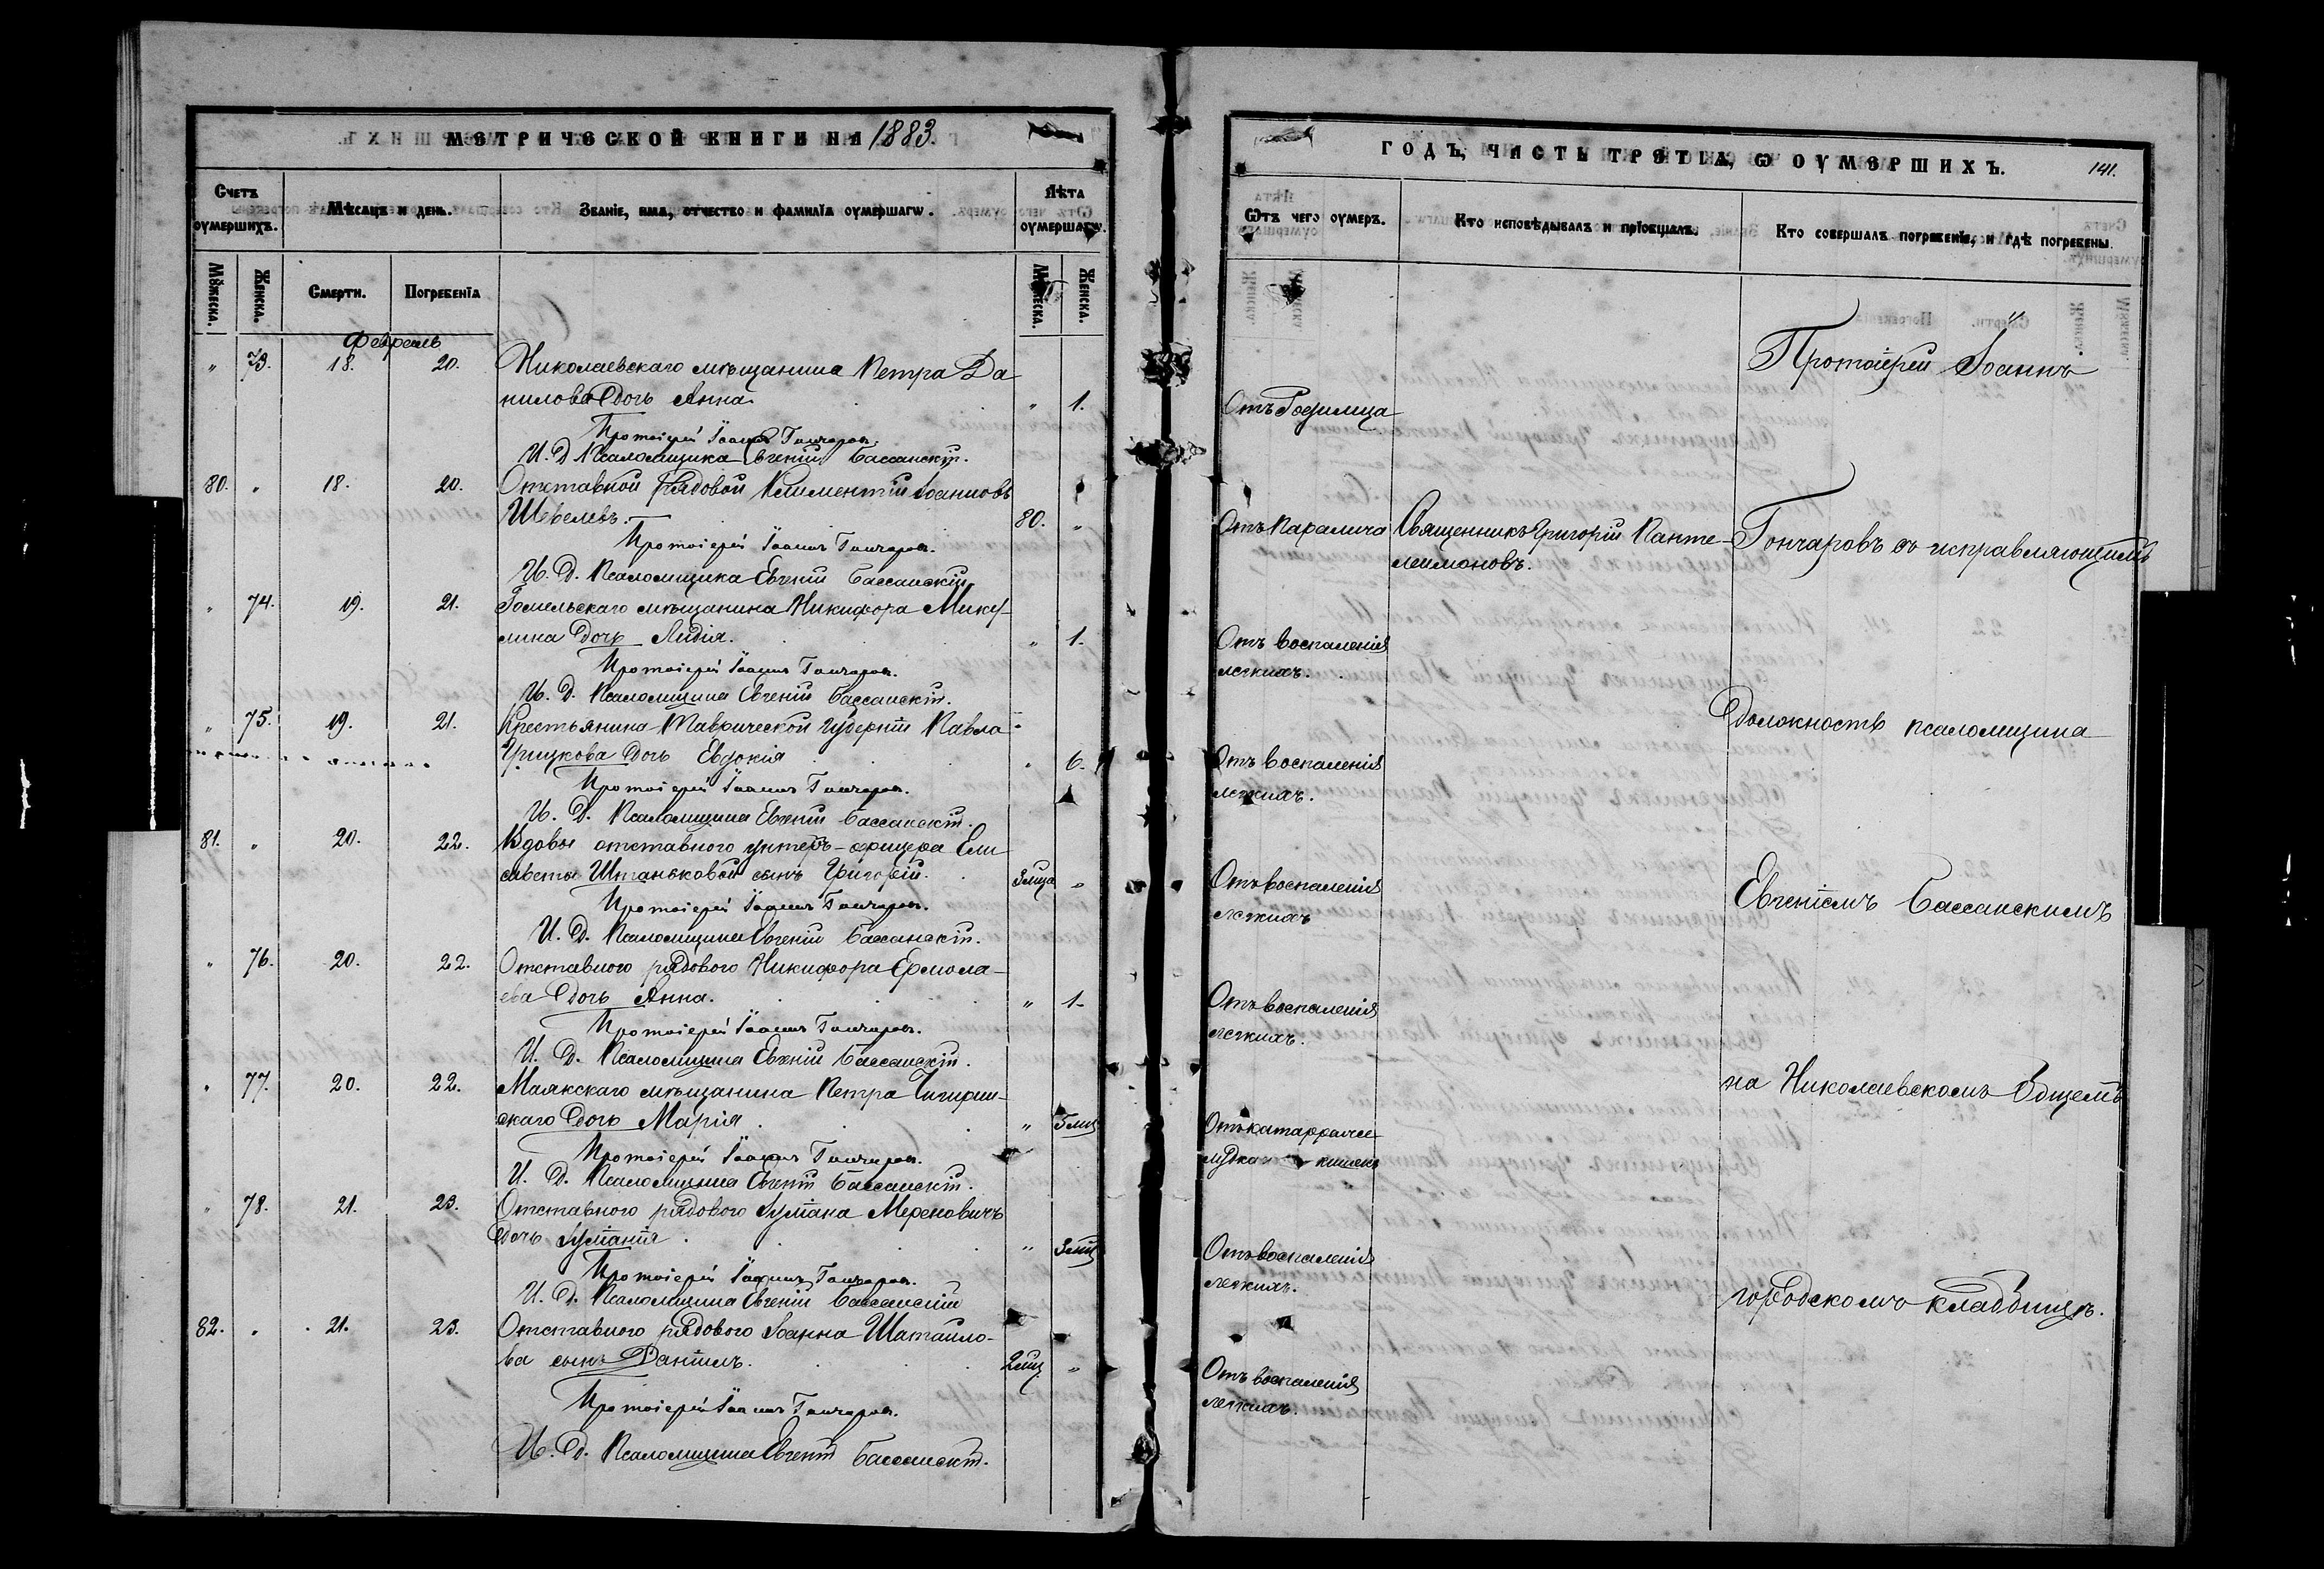 МЕТРИЧЕСКОЙ КНИГИ НА 1883.
Счетъ оумершихъ.
Мѣсяцъ и день.
Званіе, имя, отчество и фамилїа оумершагѡ.
Лѣта оумершагѡ.
Мꙋжеска.
Женска.
Смерти.
Погребенїа
Мꙋжеска.
Женска.
Февраль
" 73. 18. 20. Николаевскаго мѣщанина Петра Да
нилова дочь Анна. " 1.
Протоіерей Іоаннъ Гончаровъ.
И. Д. Псаломщика Евгеній Бассанскій.
80. " 18. 20. Отставной рядовой Климентій Іоанновъ
Шевелевъ. 80. "
Протоіерей Іоаннъ Гончаровъ.
И. Д. Псаломщика Евгеній Бассанскій
" 74. 19. 21. Гомельскаго мѣщанина Никифора Мику-
лина дочь Лидія. " 1.
Протоіерей Іоаннъ Гончаровъ.
И. Д. Псаломщика Евгеній Бассанскій.
" 75. 19. 21. Крестьянина Таврической губерніи Павла
Грицкова дочь Евдокія " 6.
Протоіерей Іоаннъ Гончаровъ.
И. Д. Псаломщика Евгеній Бассанскій.
81. " 20. 22. Вдовы отставного унтеръ-офицера Ели
саветы Штаньковой сынъ Григорій. 3 мца "
Протоіерей Іоаннъ Гончаровъ.
И. Д. Псаломщика Евгеній Бассанскій.
" 76. 20. 22. Отставного рядового Никифора Ермола-
ева дочь Анна. " 1.
Протоіерей Іоаннъ Гончаровъ.
И. Д. Псаломщика Евгеній Бассанскій.
" 77. 20. 22. Маякскаго мѣщанина Петра Чигирин-
скаго дочь Марія. "
Протоіерей Іоаннъ Гончаровъ.
И. Д. Псаломщика Евгеній Бассанскій.
" 78. 21. 23. Отставного рядового Іуліана Мереновичъ
дочь Іуліанія. "
Протоіерей Іоаннъ Гончаровъ.
И. Д. Псаломщика Евгеній Бассанскій
82. " 21. 23. Отставного рядового Іоанна Шатаило-
ва сынъ Даніилъ. 2 мц. "
Протоіерей Іоаннъ Гончаровъ.
И. Д. Псаломщика Евгеній Бассанскій.
ГОДЪ, ЧАСТЬ ТРЕТІА, Ѡ ОУМЕРШИХЪ.
141.
Ѿтъ чего оумеръ.
Кто исповѣдывалъ и прїобщалъ.
Кто совершалъ погребенїе, и гдѣ погребены.
Протоіерей Іоаннъ
Отъ Родимца
Отъ Паралича Священникъ Григорій Панте-
леимоновъ.
Гончаровъ съ исправляющимъ
Отъ воспаленія
легкихъ.
Должность псаломщика
Отъ воспаленія
легкихъ.
Отъ воспаленія
легкихъ
Евгеніемъ Бассанскимъ
Отъ воспаленія
легкихъ.
на Николаевскомъ Общемъ
Отъ катарра же-
лудка кишекъ
Отъ воспаленія
легкихъ.
городскомъ кладбищѣ.
Отъ воспаленія
легкихъ.